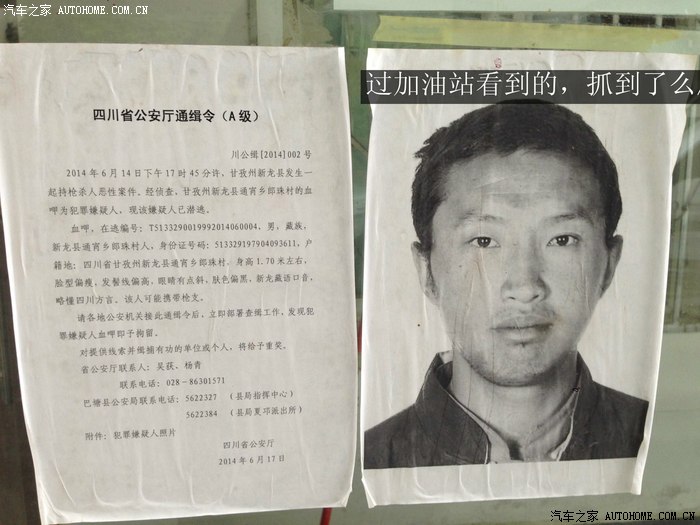 汽车之家 AUTOHOME.COM.CN
过加油站看到的，抓到了么
四川省公安厅通缉令（A 级）
川公缉[2014]002 号
2014 年 6 月 14 日下午 17 时 45 分许，甘孜州新龙县发生一
起持枪杀人恶性案件。经侦查，甘孜州新龙县通宵乡郎珠村的血
呷为犯罪嫌疑人，现该嫌疑人已潜逃。
血呷，在逃编号：T5133290019992014060004，男，藏族，
新龙县通宵乡郎珠村人，身份证号码：513329197904093611，户
籍地：四川省甘孜州新龙县通宵乡郎珠村，身高 1.70 米左右，
脸型偏瘦，发鬓线偏高，眼睛有点斜，肤色偏黑，新龙藏语口音，
略懂四川方言。该人可能携带枪支。
请各地公安机关接此通缉令后，立即部署查缉工作，发现犯
罪嫌疑人血呷即予拘留。
对提供线索并缉捕有功的单位或个人，将给予重奖。
省公安厅联系人：吴荻、杨青
联系电话：028－86301571
巴塘县公安局联系电话：5622327（县局指挥中心）
5622384（县局夏邛派出所）
附件：犯罪嫌疑人照片
四川省公安厅
2014 年 6 月 17 日
汽车之家 AUTOHOME.COM.CN